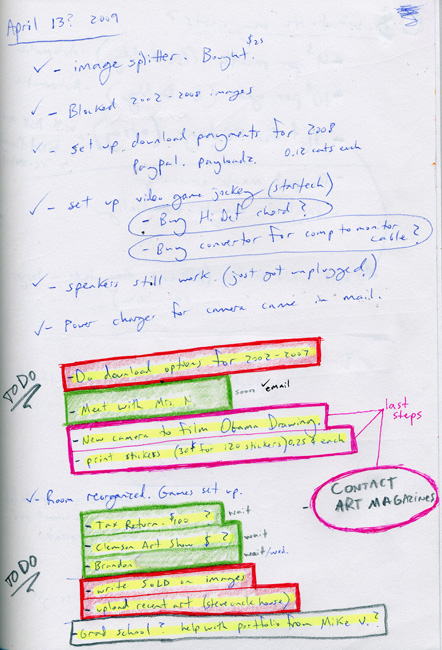 April 13? 2009
✓ - image splitter. Bought. $25
✓ - Blocked 2002-2008 images
✓ - Set up download payments for 2008
Paypal. payloadz. 0.12 cents each
✓ - set up video game jockey (startech)
- Buy Hi Def chord?
- Buy convertor for comp to monitor
cable?
✓ - speakers still work. (just got unplugged!)
✓ - Power charger for camera came in mail.
TO DO
- Do download options for 2002-2007
- Meet with Mrs. N. soon ✓email
- New camera to Film Obama Drawing.
- print stickers (3ok for 120 stickers) 0.25 ¢ each
last
steps
CONTACT
ART MAGAZINES
✓ - Room reorganized. Games set up.
TO DO
- Tax Return. $100 ? wait
- Clemson Art Show $ ? wait
- Brandon wait/wed.
- write SOLD on images
- upload recent art (steve uncle house)
- Grad school? help with portfolio from Mike V.?